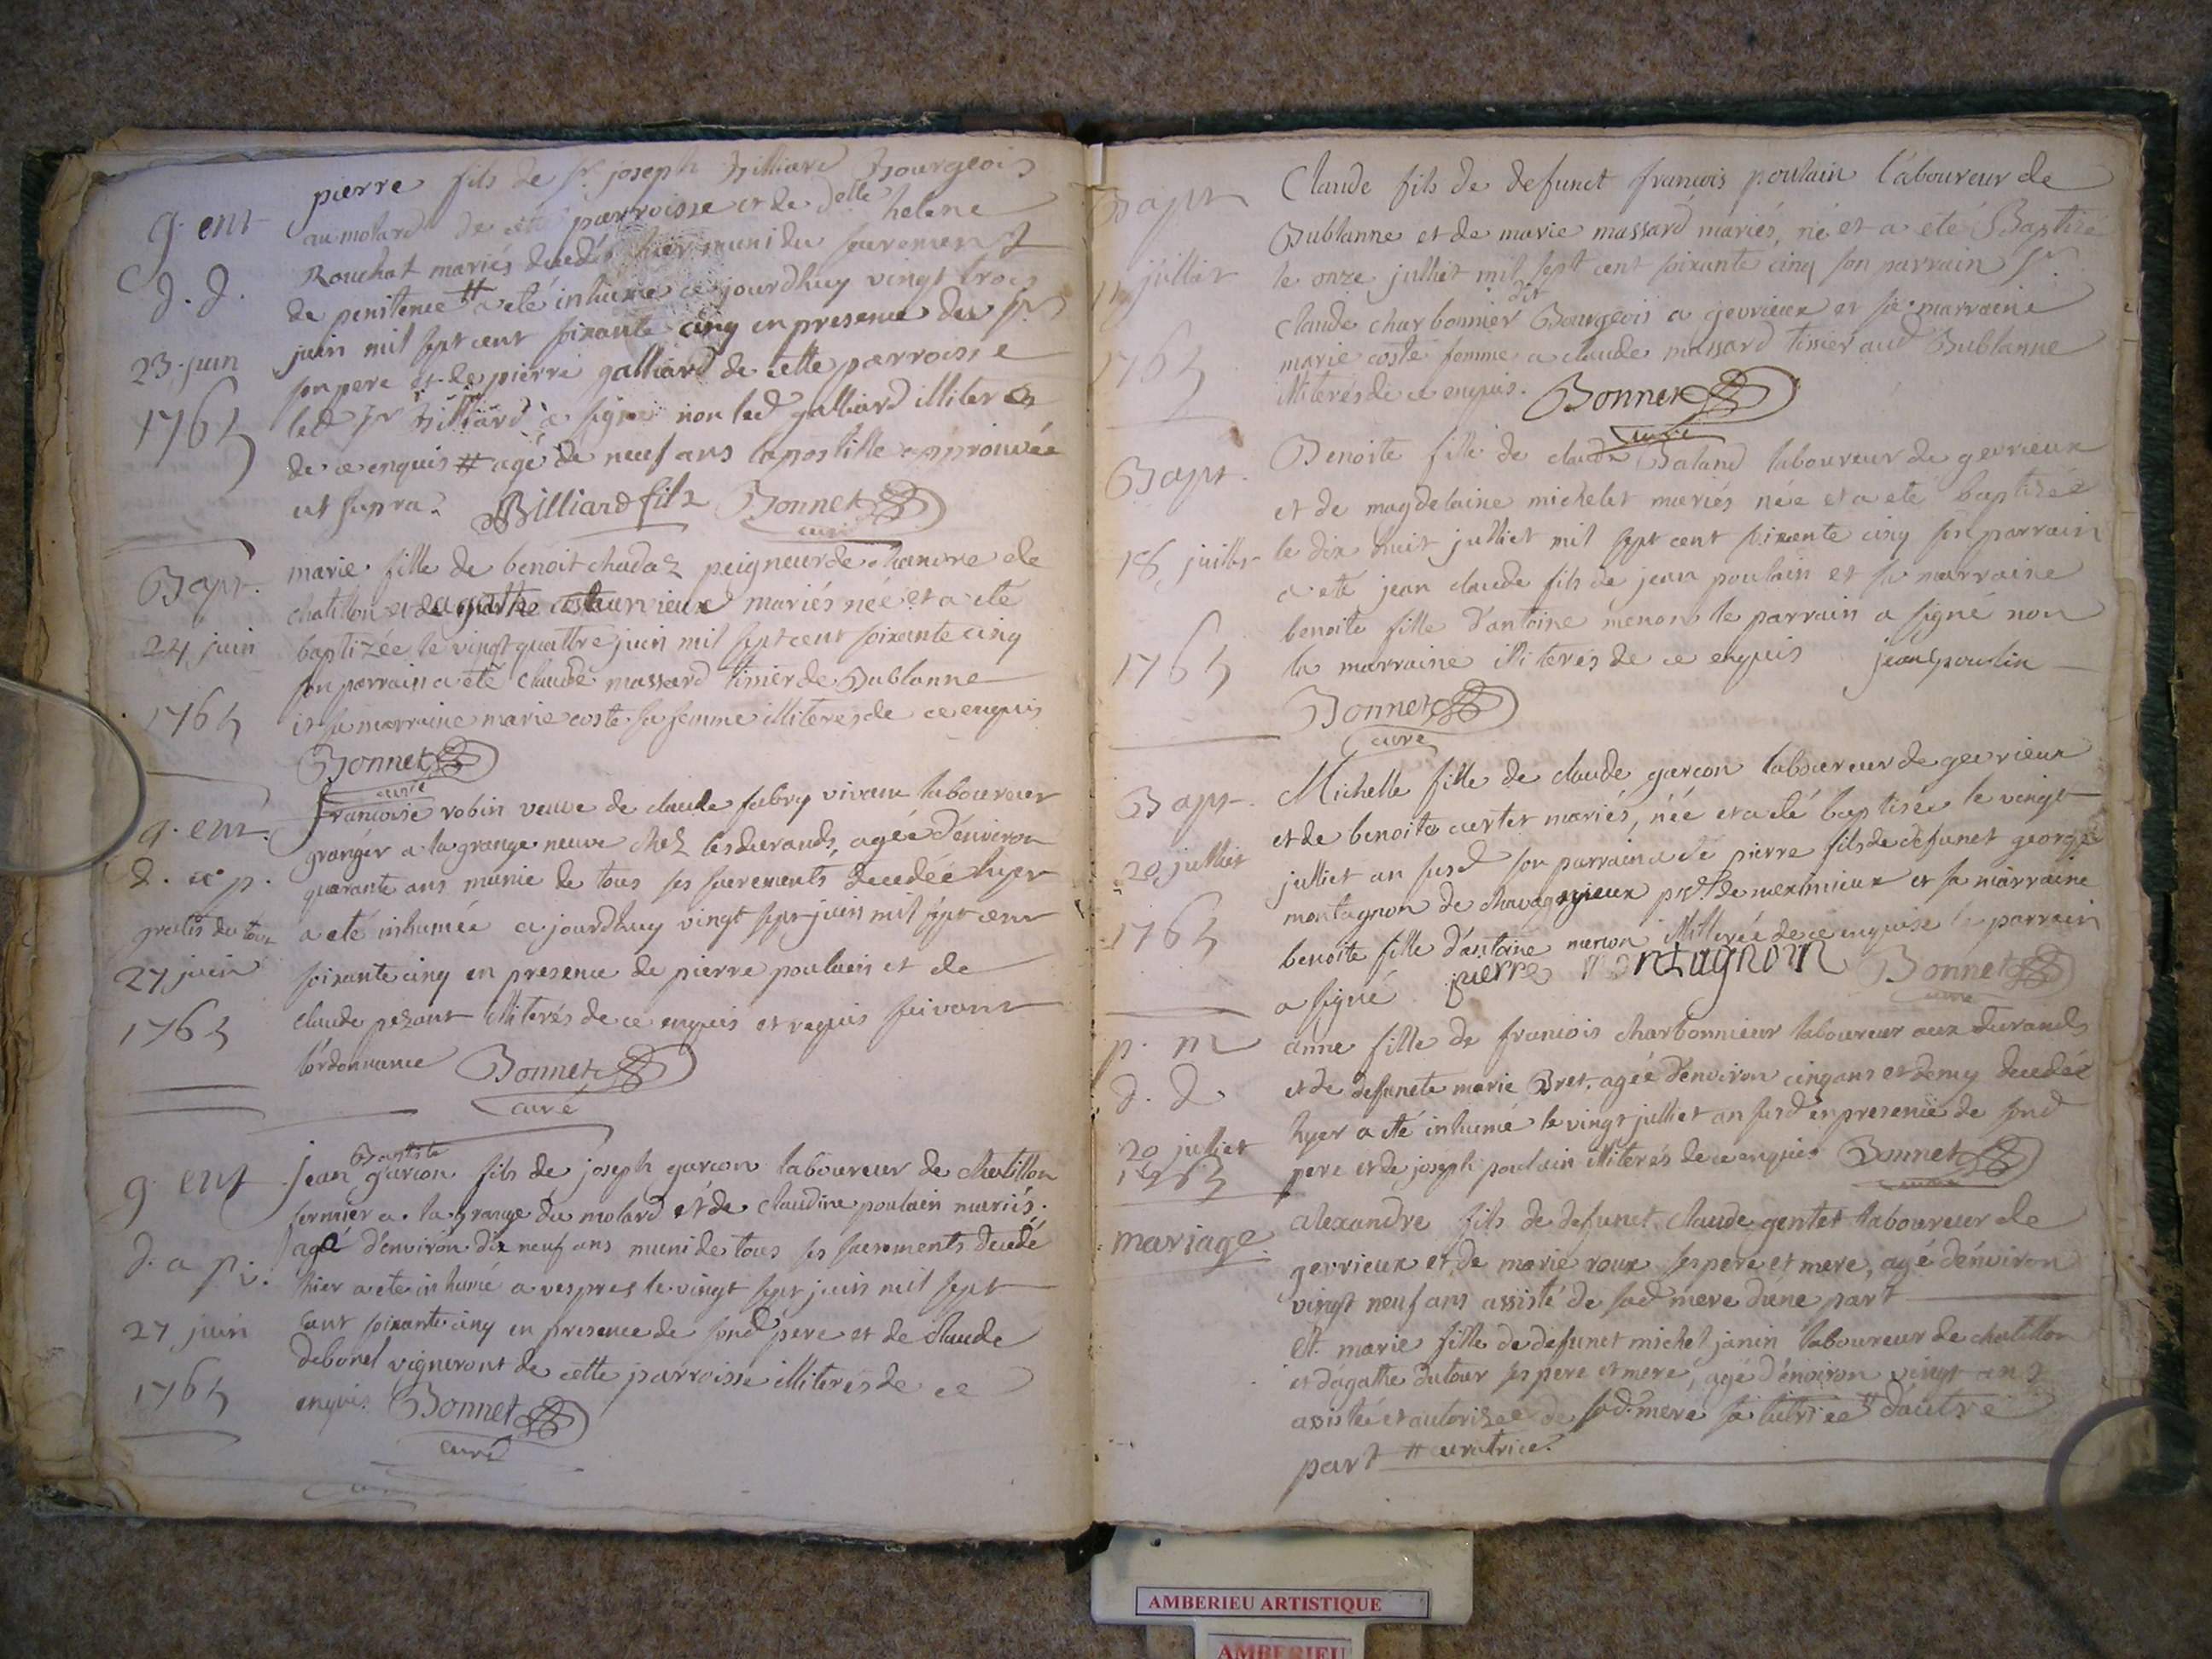 g. ent
d. d.
23 juin
1765
pierre fils de sr. joseph billiard bourgeois
au molard de cette parroisse et de delle helene
Rouchat mariés decedés hier muni du sacrement
de penitence # a eté inhumé ce jourdhuy vingt trois
juin mil sept cent soixante cinq en presence du sr
son pere et de pierre galliard de cette parroisse
led sr billiard a signé non led galliard illiterés
de ce enquis # agé de neuf ans lapostille approuvée
ut supra. Billiard fils Bonnet
curé
Bapt.
24 juin
1765
marie fille de benoit chadaz peigneur de chanvre de
chatillon et de agathe mariés née et a eté
baptizée le vingt quattre juin mil sept cent soixante cinq
son parrain a eté claude massard tissier de Bublanne
et sa marraine marie coste sa femme illiterés de ce enquis
Bonnet
curé
g. ent.
d. p.
gratis du tour
27 juin
1765
francoise robin veuve de claude fabry vivant laboureur
granger a la grange neuve chez les durands, agée d'environ
quarante ans munie de tous ses sacrements decedée hyer
a eté inhumée ce jourdhuy vingt sept juin mil sept cent
soixante cinq en presence de pierre poulain et de
claude pezant illiterés de ce enquis et requis suivant
l'ordonnance Bonnet
curé
g. ent
d. a p.
27 juin
1765
Baptiste
jean garcon fils de joseph garcon laboureur de chatillon
fermier a la grange du molard et de claudine poulain mariés.
agé d'environ dix neuf ans muni de tous ses sacrements decedé
hier a eté inhumé a vespres le vingt sept juin mil sept
cent soixante cinq en presence de sond pere et de claude
debonel vigneront de cette parroisse illiterés de ce
enquis. Bonnet
curé
Bapt
11 julliet
1765
Claude fils de defunct francois poulain laboureur de
Bublanne et de marie massard mariés, né et a eté Baptizé
le onze julliet mil sept cent soixante cinq son parrain sr.
claude charbonnier dit Bourgeois a gevrieux et sa marraine
marie coste femme a claude massard tissier aud Bublanne
illiterés de ce enquis. Bonnet
curé
Bapt.
18 juillet
1765
Benoite fille de claude Baland laboureur de gevrieux
et de magdelaine michelet mariés née et a eté baptizée
le dix huit julliet mil sept cent soixante cinq son parrain
a eté jean claude fils de jean poulain et sa marraine
benoite fille d'antoine menon le parrain a signé non
la marraine illiterés de ce enquis jean poulin
Bonnet
curé
Bapt.
20 julliet
1765
Michelle fille de claude garcon laboureur de gevrieux
et de benoite cartet mariés, née et a eté baptisée le vingt
julliet an susd son parrain a eté pierre fils de defunct george
montagnon de chavagnieux de meximieux et sa marraine
benoite fille d'antoine menon illiterée de ce enquise le parrain
a signé pierre montagnon Bonnet
curé
p. m
d. d.
20 julliet
1765
anne fille de francois charbonnieur laboureur aux durands
et de defuncte marie Bret, agée d'environ cinq ans et demy decedée
hyer a eté inhumé le vingt julliet an susd en presence de sond
pere et de joseph poulain illiterés de ce enquis Bonnet
curé
mariage
alexandre fils de defunct claude gentet laboureur de
gevrieux et de marie roux ses pere et mere, agé d'environ
vingt neuf ans assisté de sad mere dune part
et marie fille de defunct michel janin laboureur de chatillon
et d'agathe dutour ses pere et mere, agé d'environ vingt ans
assistée et autorisée de sad. mere sa tutrice # d'autre
part # curatrice.
AMBERIEU ARTISTIQUE
AMBERIEU